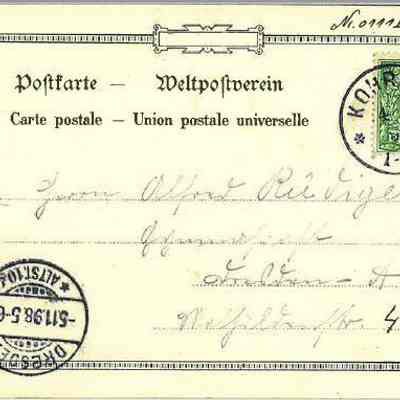 Postkarte — Weltpostverein
Carte postale — Union postale universelle
KOHR
Herrn Alfred Rüdige
Dresden - A
Mathildenstr. 4
DRESDEN ALTST. 10
-5.11.98. 5-6